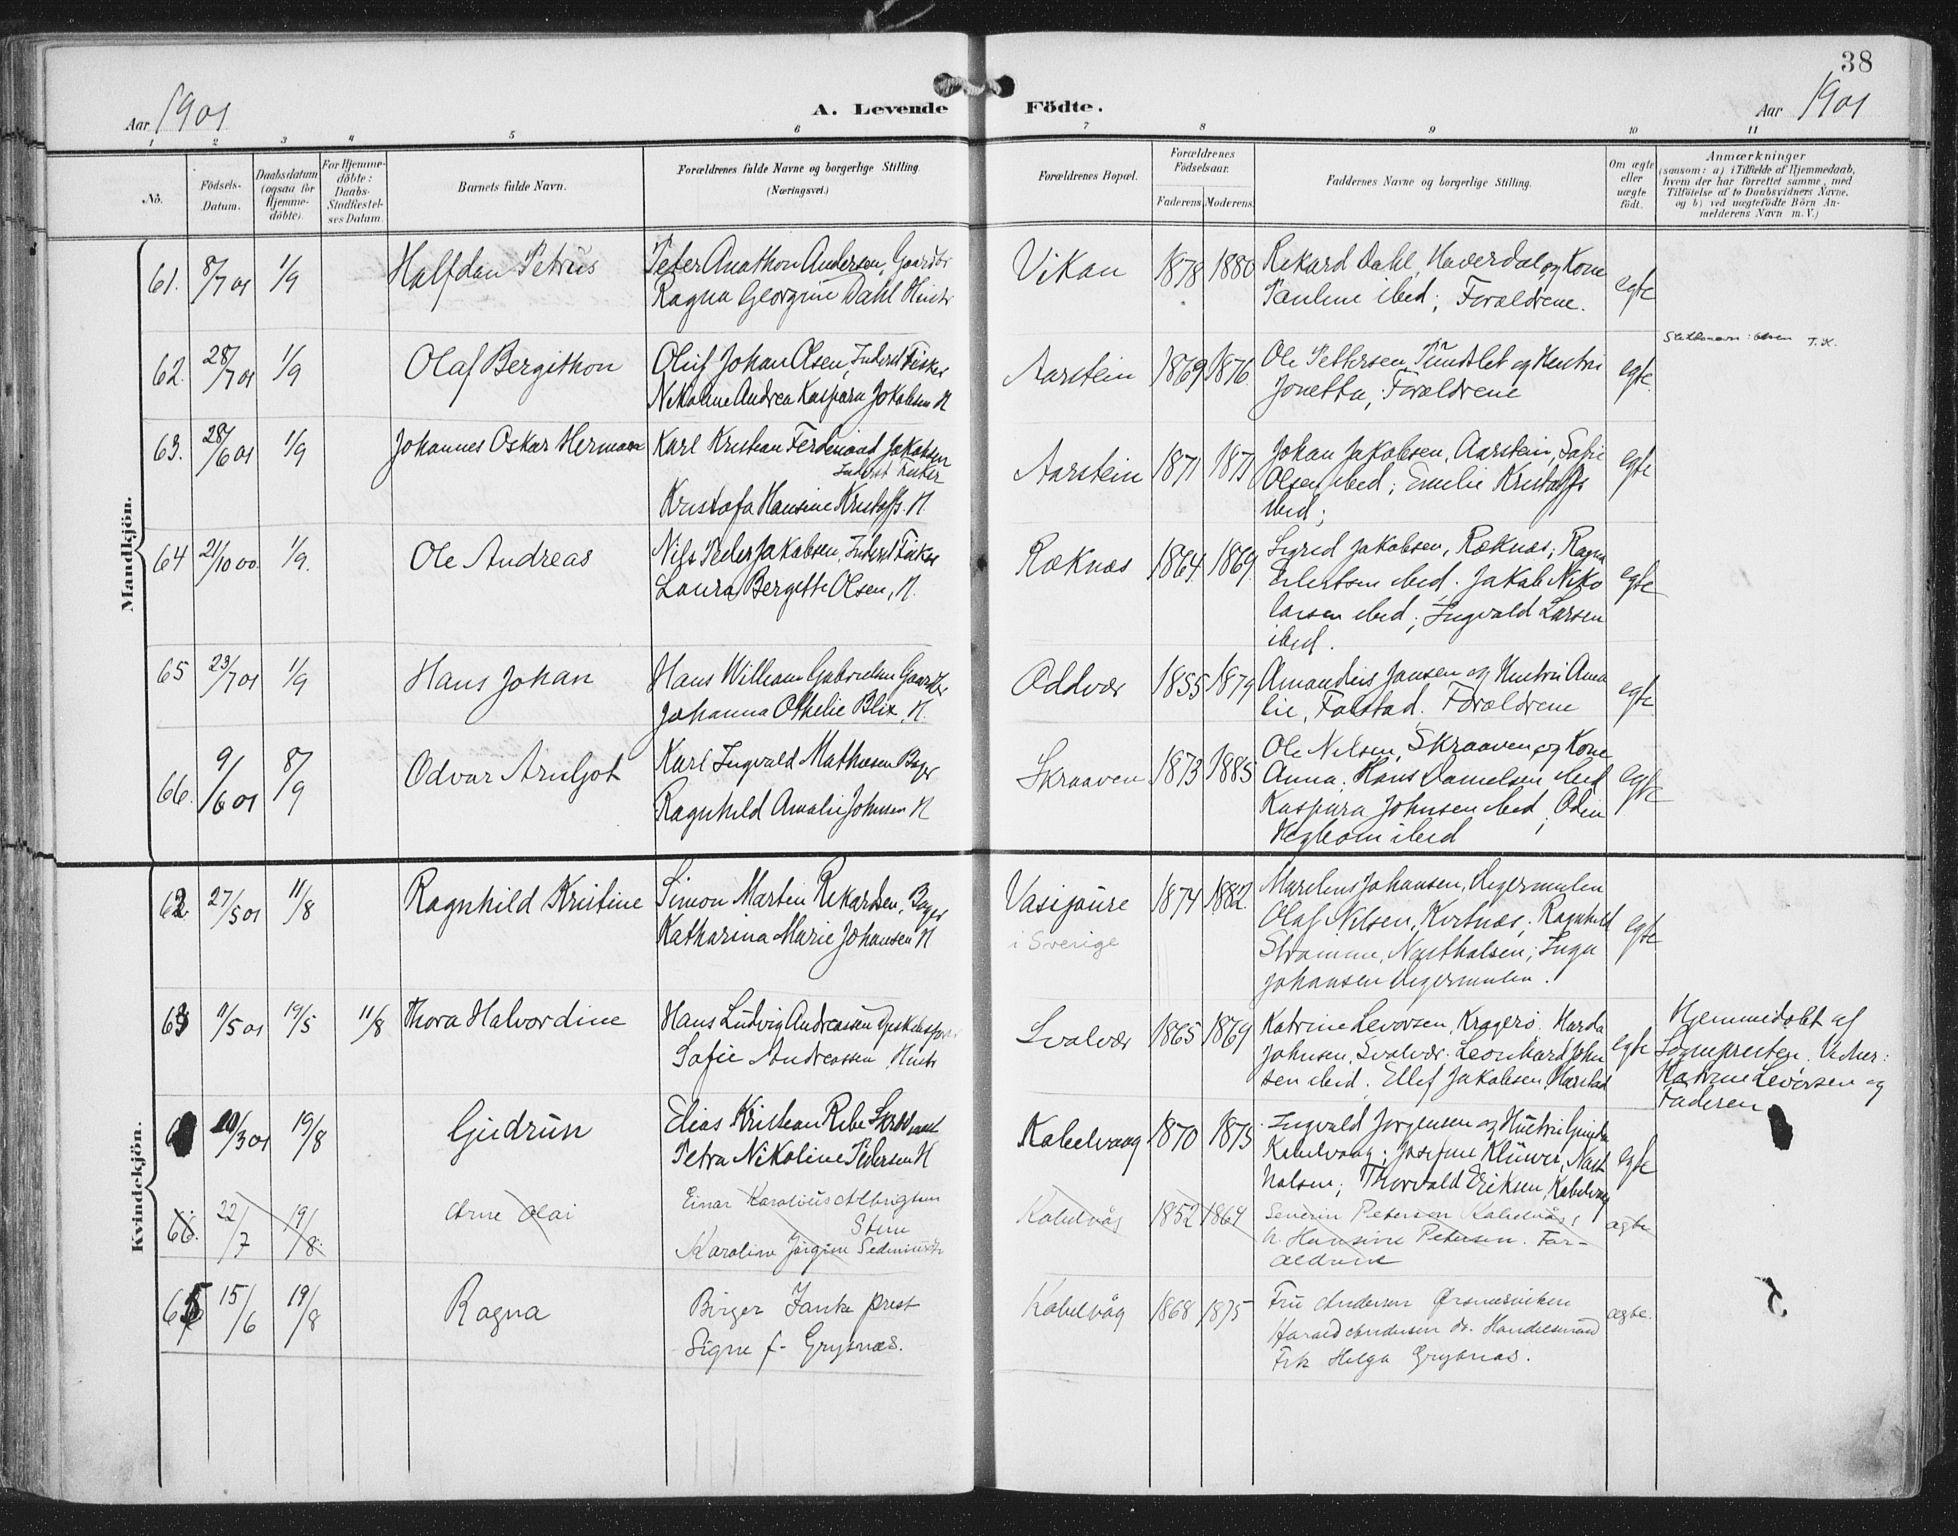 38
Aar 1901
A. Levende Födte.
Aar 1901
1 2 3 4 5 6 7 8 9 10 11
No.
Födsels-
Datum.
Daabsdatum
(ogsaa for
Hjemme-
döbte).
For Hjemme-
döbte:
Daabs-
Stadfæstel-
ses Datum.
Barnets fulde Navn.
Forældrenes fulde Navne og borgerlige Stilling
(Næringsvei.)
Forældrenes Bopæl.
Forældrenes
Födselsaar.
Faderens Moderens
Faddernes Navne og borgerlige Stilling.
Om ægte
eller
uægte
födt.
Anmærkninger
(saasom: a) i Tilfælde af Hjemmedaab,
hvem der har forrettet samme, med
Tilföielse af to Daabsvidners Navne.
og b) ved uægtefödte Börn An-
melderens Navn m. V.)
Mandkjön.
61. 8/7 01 1/9 Halfdan Petrus
Peter Anathon Andersen, Gaardbr
Ragna Georgine Dahl Hustr
Vikan 1878 1880
Rikard Dahl, Haverdal og Kone
Pauline ibid; Forældrene.
egte
62. 28/7 01 1/9 Olaf Bergithon
Oluf Johan Olsen, Inderst Fisker
Nikoline Andrea Kaspara Jakobsen H
Aarstein 1869 1876
Ole Pettersen, Tundslet og Hustru
Jonetta; Forældrene
egte
63. 28/6 01 1/9 Johannes Oskar Herman
Karl Kristian Ferdinand Jakobsen
Inderst Fisker
Kristofa Hansine Kristoffs. H
Aarstein 1871 1871
Johan Jakobsen, Aarstein, Sofie
Olsen ibid; Emilie Kristoffs
ibid;
egte
64 21/10 00. 1/9. Ole Andreas
Nils Peder Jakobsen, Inderst Fisker
Laura Bergitte Olsen, H.
Ræknæs 1864 1869.
Sigrid Jakobsen, Ræknæs; Ragna
Eilertsen ibid. Jakob Niko
laisen ibid; Ingvald Larsen
ibid.
egte
65 23/7 01 1/9 Hans Johan
Hans William Gabrielsen Gaardbr
Johanna Othelie Blix, H.
Oddvær 1855 1879
Amandus Jansen og Hustru Ama
lie, Falstad. Forældrene
egte
66. 9/6 01 8/9 Odvar Arnljot
Karl Ingvald Mathisen Bager
Ragnhild Amalie Johnsen H
Skraaven 1873 1885
Ole Nilsen, Skraaven og Kone
Anna; Hans Danielsen ibid
Kaspara Johnsen ibid; Odin
Hegbom ibid
egte
Kvindekjön.
62 27/5 01 11/8 Ragnhild Kristine
Simon Martin Rikardsen, Bager
Katharina Marie Johansen H
Vasijaure
i Sverige
1874 1882
Marelius Johansen, Digermulen
Olaf Nilsen, Kvitnæs; Ragnhild
Stramme, Næstholsen; Inga
Johansen Digermulen.
egte
63 11/5 01 19/5 11/8 Thora Halvordine
Hans Ludvig Andreassen
Sofie Andreassen, Hustr
Svolvær 1865 1869
Katrine Levorsen, Kragerø. Harda
Johnsen, Svolvær. Leonhard John
sen ibid. Ellef Jakobsen, Harstad
egte
Hjemmedøbt af
Sognepresten. Vidner:
Katrine Levorsen og
Faderen
20/3 01 19/8 Gudrun
Elias Kristian Ribe
Petra Nikoline Pedersen H
Kabelvaag 1870 1875
Ingvald Jørgensen og Hustru Gunda
Kabelvaag; Josefine Klüwer, Næst
holsen; Thorvald Eriksen, Kabelvaag
egte
22/7 19/8. Arne Olai
Einar Karolius Albrigtsen
Stene
Karoline Jørgine
Kabelvåg 1852 1864
Severin Petersen Kabelvåg;
h. Hansine Petersen. For-
ældrene
ægte
65 15/6 19/8 Ragna
Birger Janke prest
Signe f. Grysnæs.
Kabelvåg 1868 1875
Fru Andersen Ørsnæsviken
Harald Andersen do. Handelsmand
Frk Helga Grysnæs.
ægte.